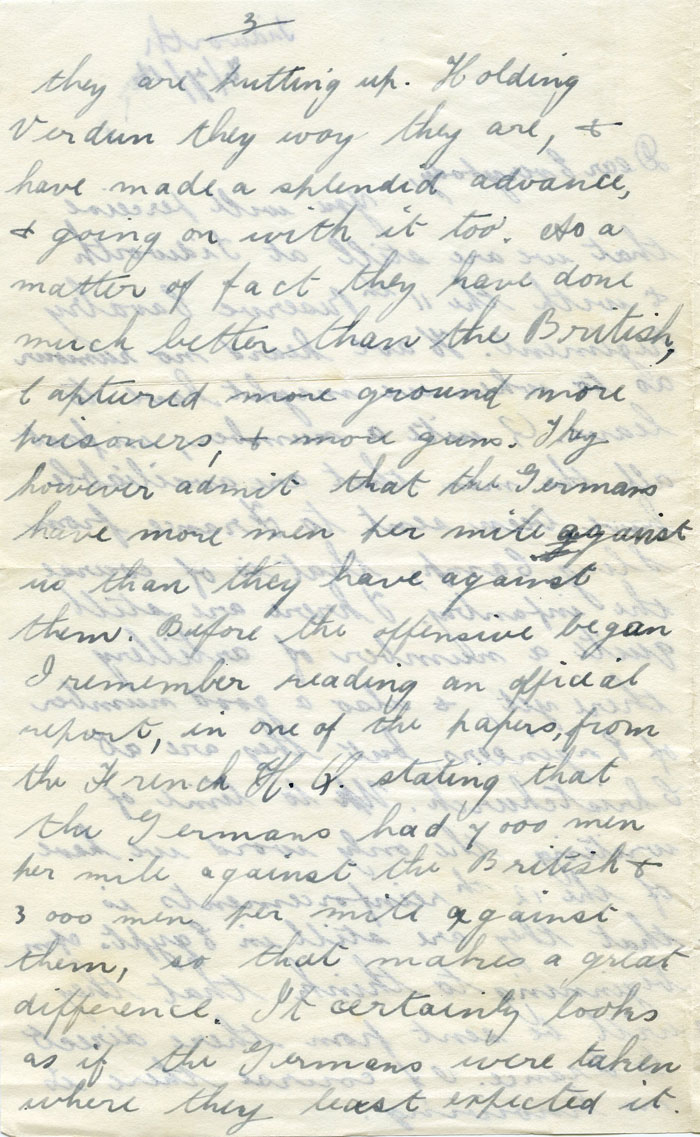 3
they are putting up. Holding
Verdun they way they are, &
have made a splendid advance,
& going on with it too. As a
matter of fact they have done
much better than the British,
Captured more ground more
prisoners, & more guns. They
however admit that the Germans
have more men per mile against
us than they have against
them. Before the offensive began
I remember reading an official
report, in one of the papers, from
the French H. Q. stating that
the Germans had 7000 men
per mile against the British &
3000 men per mile against
them, so that makes a great
difference. It certainly looks
as if the Germans were taken
where they least expected it.